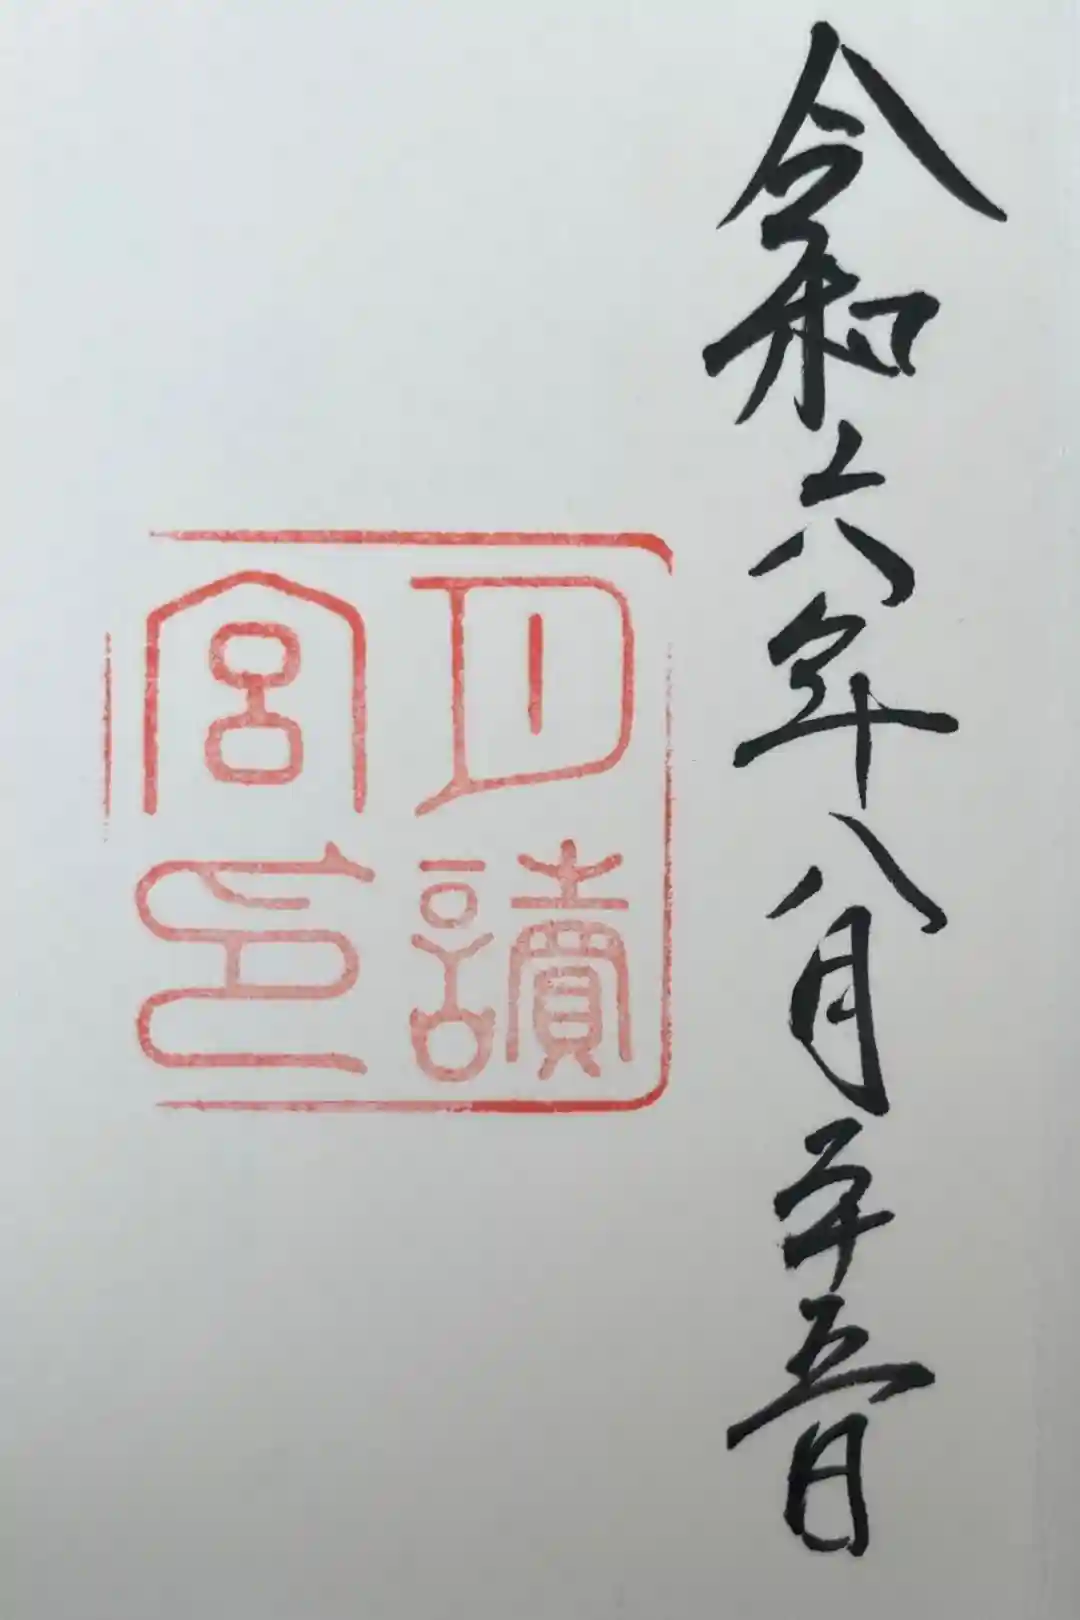 令和六年八月二十五日
月讀
宮印